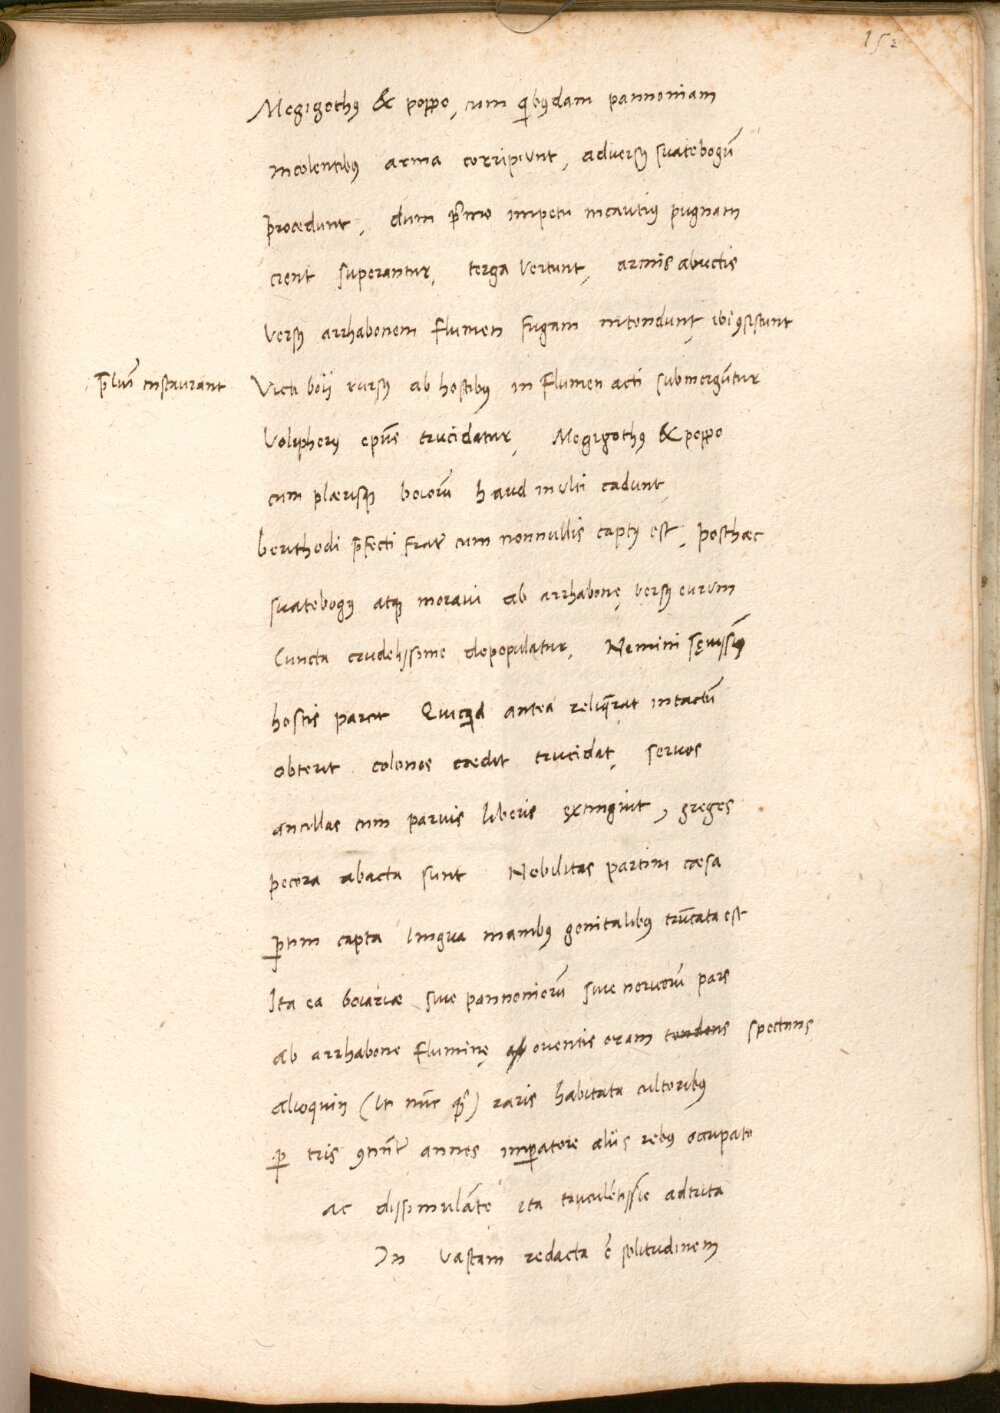 152
Megigothꝰ & poppo, cum qibꝰdam pannoniam
incolentibꝰ arma corripiunt, adversꝰ suatebogū
procedunt, dum p̄mo impetu incautiꝰ pugnam
cient superantur, terga vertunt, armis abiectis
versꝰ arrhabonem flumen fugam intendunt, ibi ꝯsistunt
p̄liū instaurant
Victi boij rursꝰ ab hostibꝰ in flumen acti submergūtur
Volipherꝰ trucidatur, Megigothꝰ & poppo
cum plærisqꝫ boiorū haud multi cadunt
berthodi p̄fecti frater cum nonnullis captꝰ est, posthæc
suatebogꝰ atqꝫ moravi ab arrhabonę versꝰ eurum
Cuncta crudelissime depopulatur, Nemini sęvissimꝰ
hostis parcit Quicqd antea reliq̄rat intactū
obterit colonos cædit trucidat, servos
ancillas cum parvis liberis extinguit, greges
pecora abacta sunt Nobilitas partim cæsa
ꝑtim capta lingua manibꝰ genitalibꝰ trūcata est
Ita ea boiariæ sive pannoniorū sive noricorū pars
ab arrhabone fluminę orientis oram tendens spectans
alioquin (ut nūc qꝫ) raris habitata cultoribꝰ
ꝑ tris ꝯtinēter annos imꝑatore aliis rebꝰ occupato
ac dissimulāte ita truculētissīe adtrita
In vastam redacta ē solitudinem